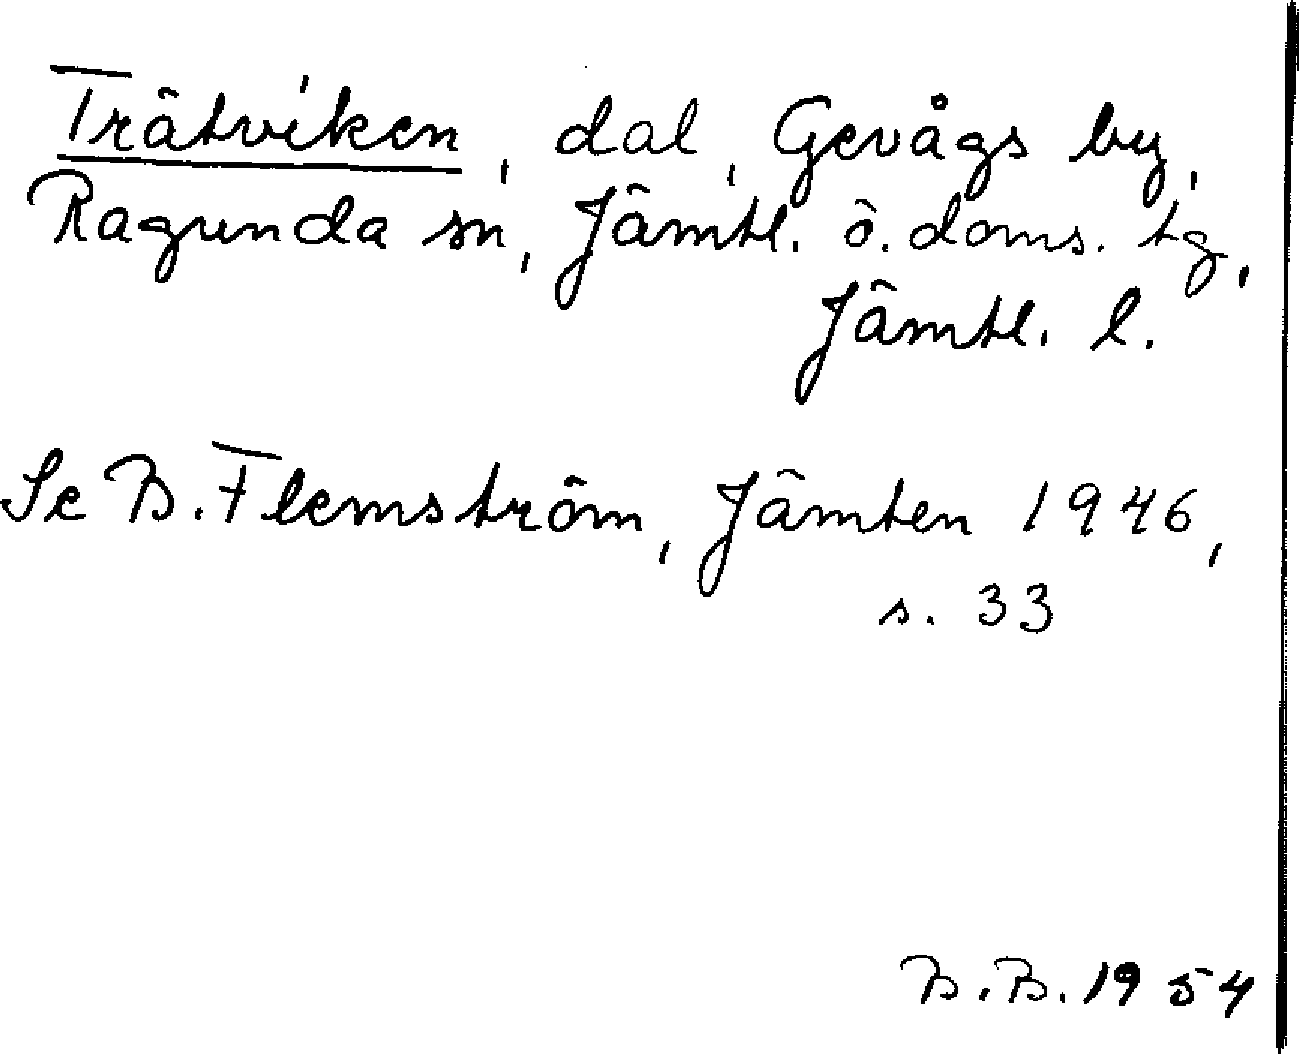 Trätviken, dal, Gevågs by,
Ragunda sn, Jämtl. ö. doms. tg,
Jämtl. l.
Se B. Flemström, Jämten 1946,
s. 33
B.B. 1954